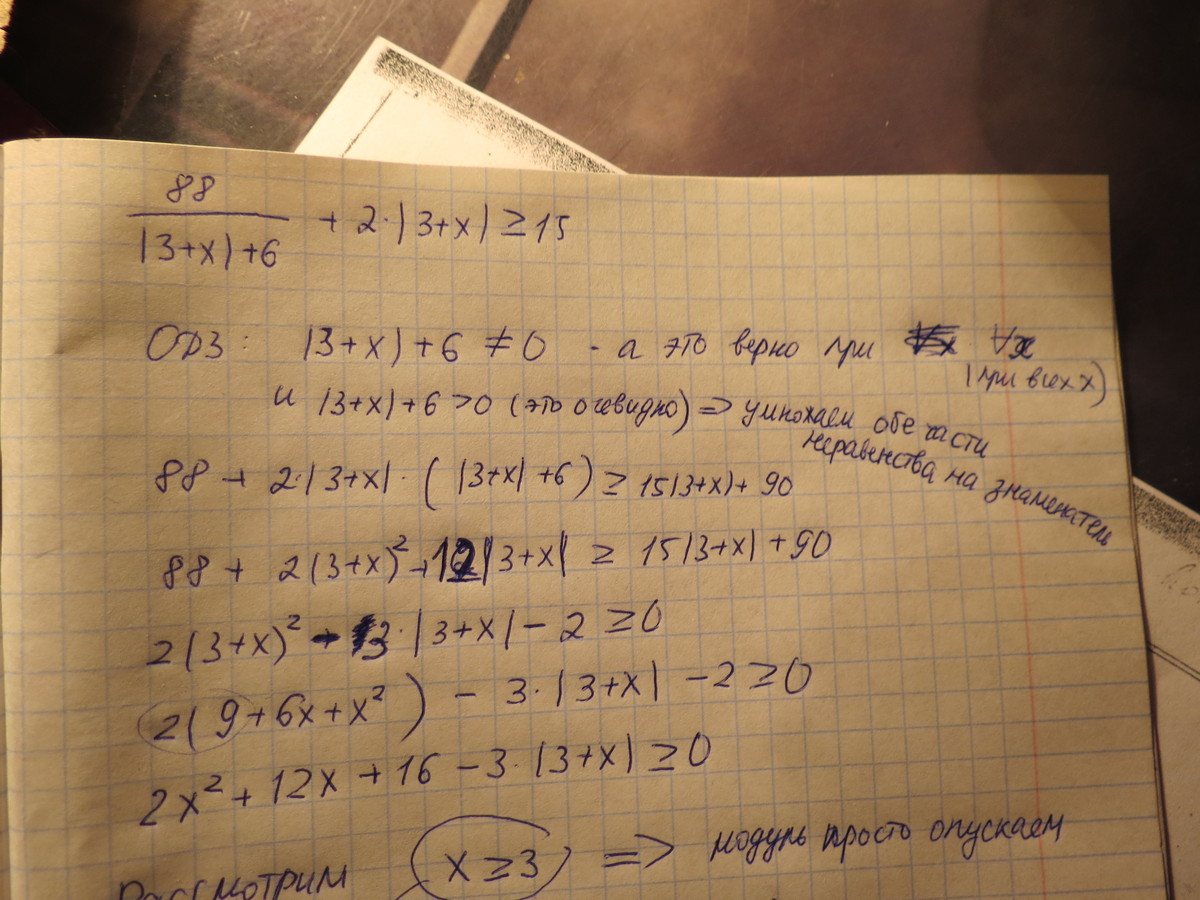 88
|3+x|+6 + 2·|3+x| ≥ 15
ОДЗ: |3+x|+6 ≠ 0 - а это верно при ∀x
(при всех x)
и |3+x|+6 > 0 (это очевидно) => умножаем обе части
неравенства на знаменатель
88 + 2·|3+x|·(|3+x|+6) ≥ 15|3+x|+90
88 + 2(3+x)² + 12|3+x| ≥ 15|3+x|+90
2(3+x)² - 3·|3+x| - 2 ≥ 0
2(9+6x+x²) - 3·|3+x| - 2 ≥ 0
2x² + 12x + 16 - 3·|3+x| ≥ 0
Рассмотрим x ≥ 3 => модуль просто опускаем